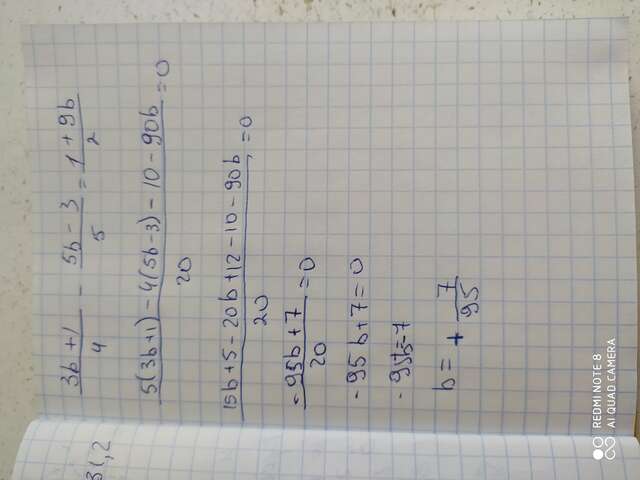 (3b+1)/4 - (5b-3)/5 = (1+9b)/2
(5(3b+1)-4(5b-3)-10-90b)/20 = 0
(15b+5-20b+12-10-90b)/20 = 0
(-95b+7)/20 = 0
-95b+7=0
-95b=7
b= + 7/95
31,2
REDMI NOTE 8
AI QUAD CAMERA